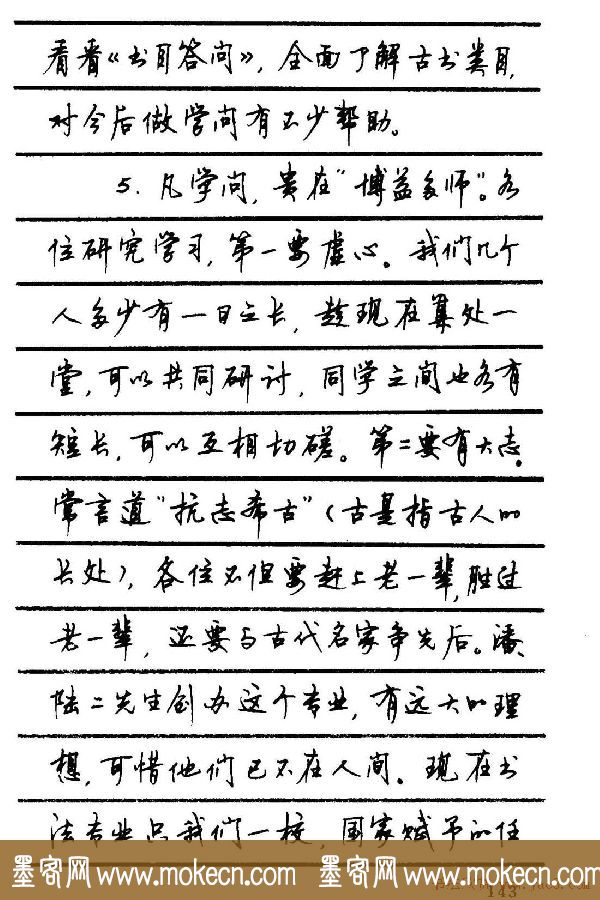 看看《书目答问》，全面了解古书类目，
对今后做学问有不少帮助。
5. 凡学问，贵在“博益多师”。各
位研究学习，第一要虚心。我们几个
人多少有一日之长，趁现在集处一
堂，可以共同研讨，同学之间也各有
短长，可以互相切磋。第二要有大志。
常言道“抗志希古”（古是指古人的
长处），各位不但要赶上老一辈，胜过
老一辈，还要与古代名家争先后。潘、
陆二先生创办这个专业，有远大的理
想，可惜他们已不在人间。现在书
法专业只我们一校，国家赋予的任
墨客网 www.mokecn.com 墨客网 www.mokecn.com
143